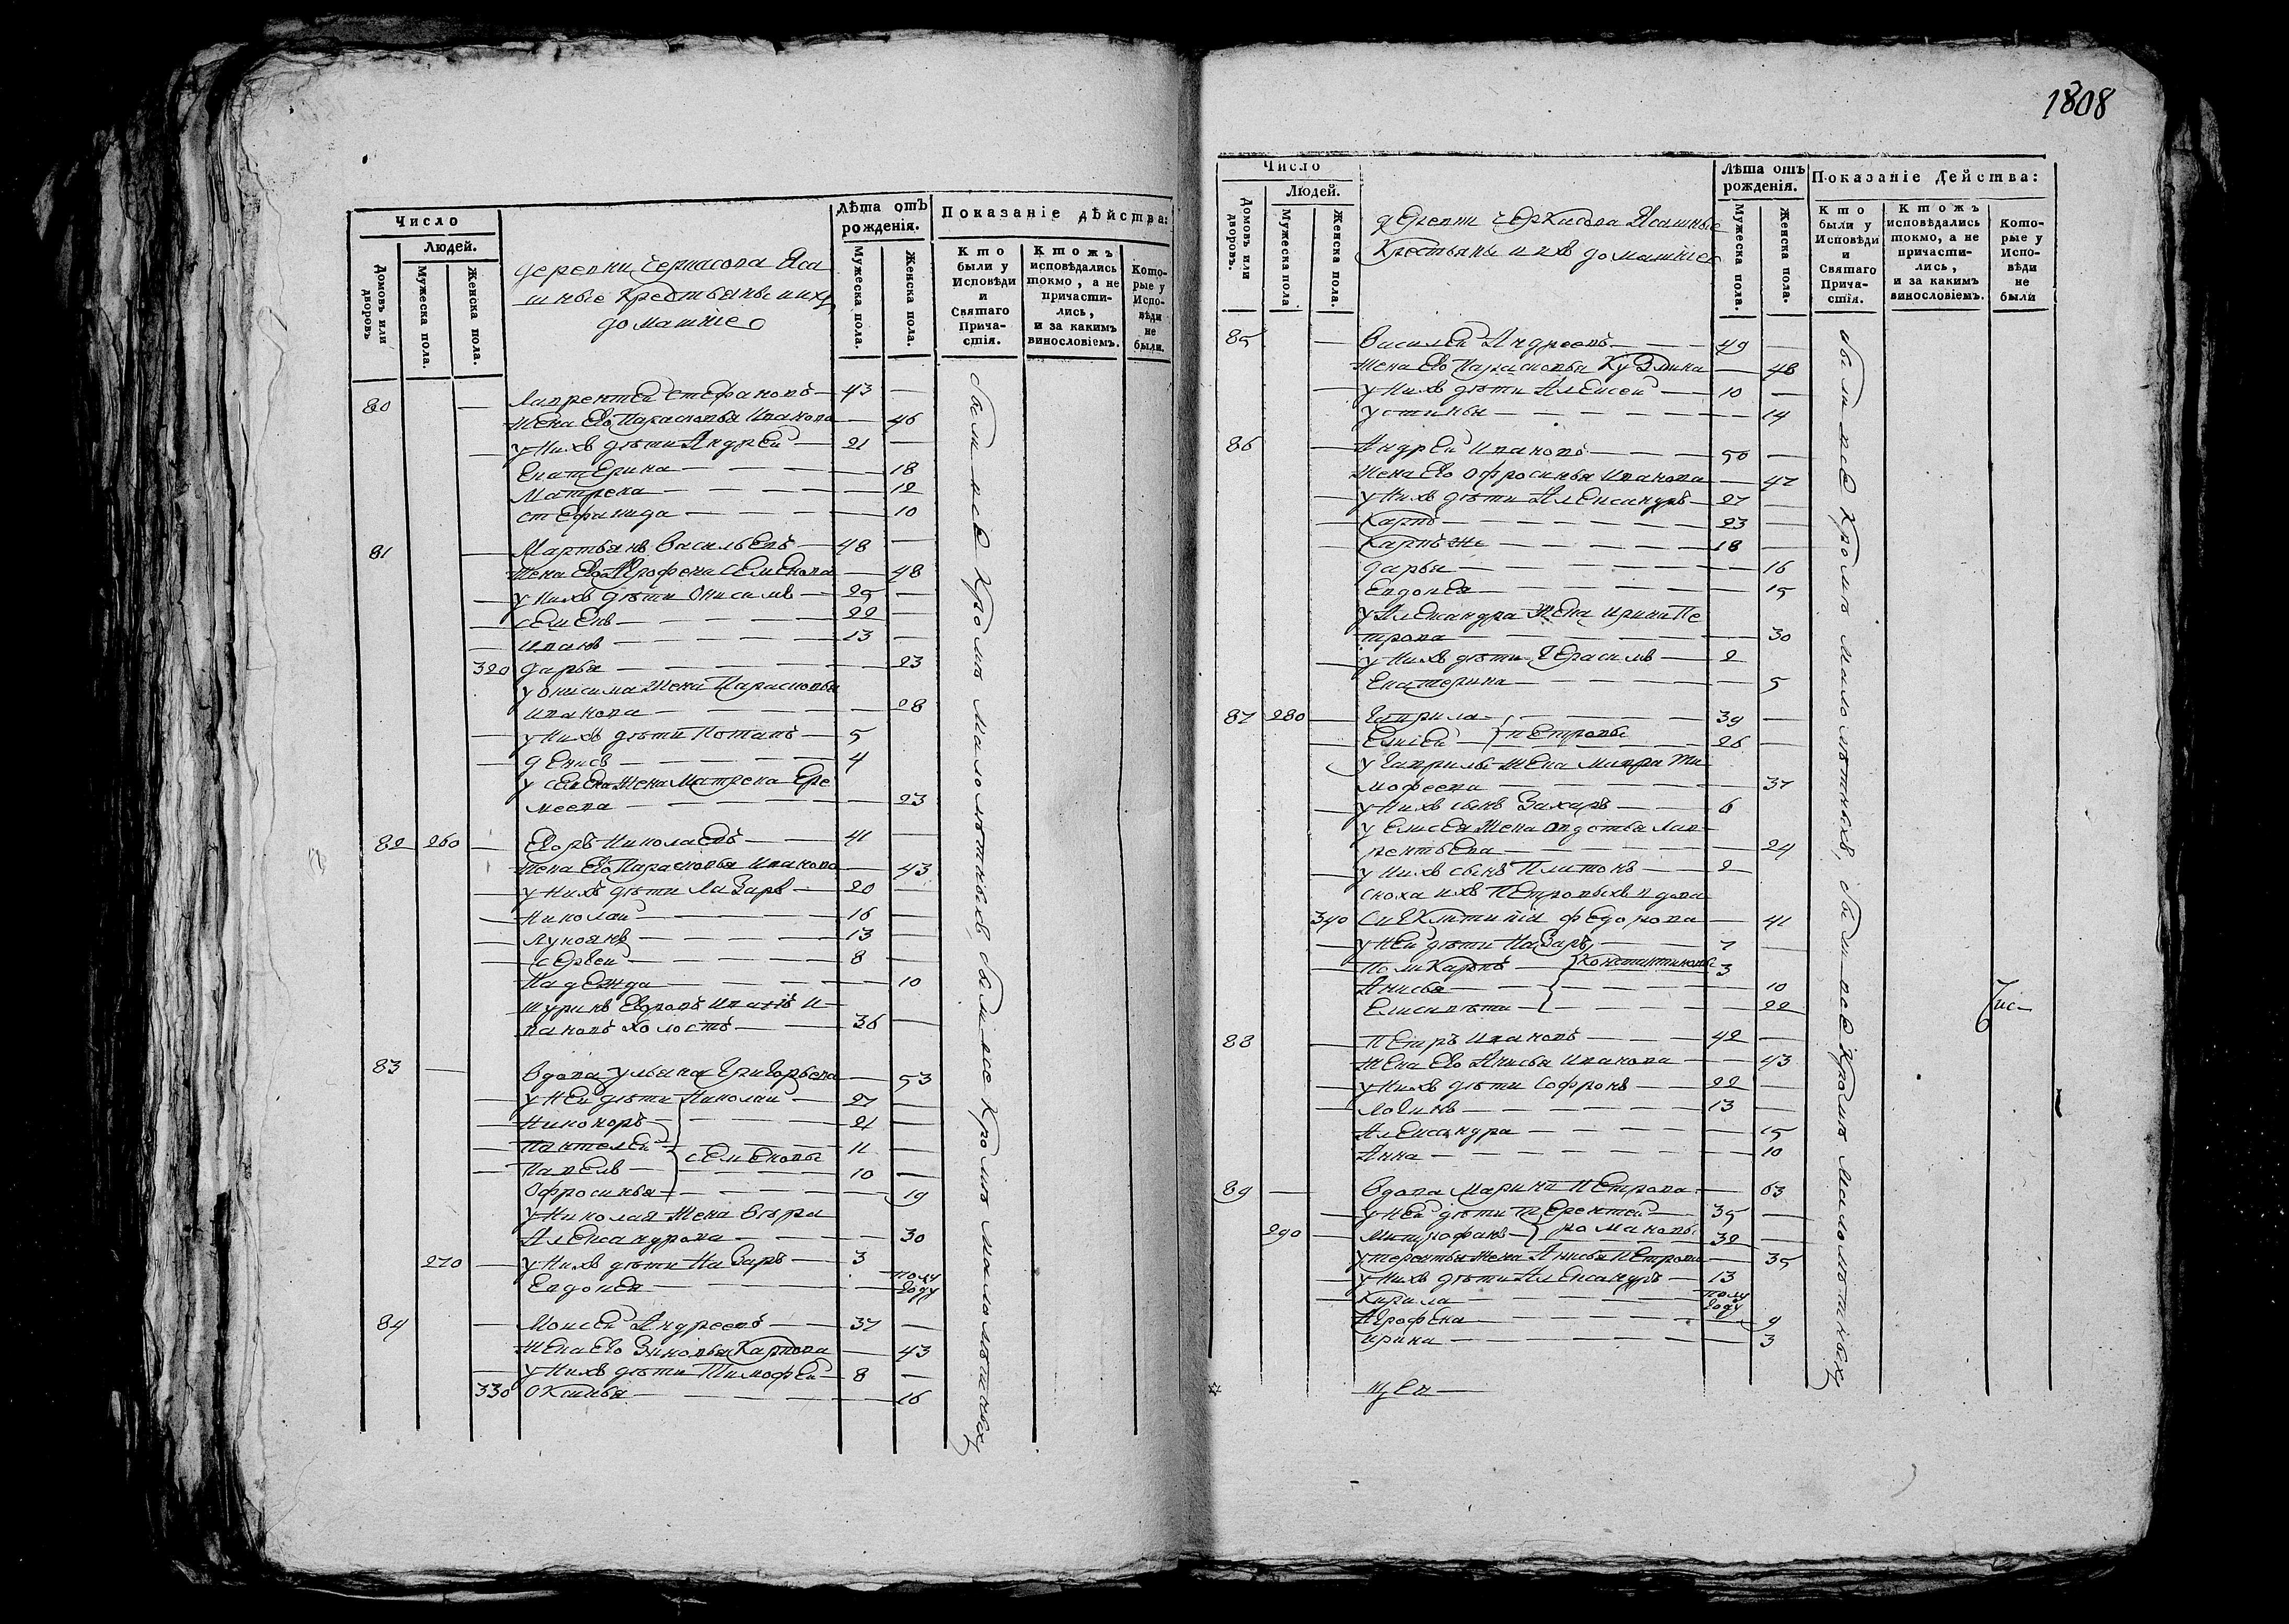 Число
Людей.
Домовъ или дворовъ
Мужеска пола.
Женска пола.
деревни Черкасова Яса
шные Крестьяне и ихъ
домашнiе
Лѣта отъ рожденiя.
Мужеска пола.
Женска пола.
Показанiе дѣйства:
Кто были у Исповѣди и Святаго Прича-стiя.
Ктожъ исповѣдались токмо, а не причасти-лись, и за какимъ винословiемъ.
Кото-рые у Испо-вѣди не были.
80 — Лаврентей Стефановъ — 43 —
жена Его Парасковья Иванова — 46
— у нихъ дѣти Андрей — 21 —
Екатерина — 18
Матрена — 12
Стефанида — 10
81 — Мартьянъ Васильевъ — 48 —
жена Его Агрофена Семенова — 48
— у нихъ дѣти Онисимъ — 25 —
— Семенъ — 22
— Иванъ — 13 —
320 Дарья — 23
у Онисима жена Парасковья
Иванова — 28
— у нихъ дѣти Потапъ — 5
— Денисъ — 4
у Семена жена Матрена Ере
меева — 23
82 260 — Егоръ Николаевъ — 41 —
жена Его Парасковья Иванова — 43
— у нихъ дѣти Лазарь — 20
— Николай — 16 —
— Лукоянъ — 13 —
— Сергей — 8 —
Надежда — 10
шуринъ Егоровъ Иванъ И
вановъ холостъ — 36 —
83 — вдова Ульяна Григорьева — 53
— у ней дѣти Николай — 27 —
— Никоноръ — 21 —
— Пантелей — Семеновы 11 —
— Павелъ — 10 —
Офросинья — 19
у Николая жена Вѣра
Александрова — 30
270 — у нихъ дѣти Назаръ — 3
Евдокея — полу году
84 — Моисей Андреевъ — 37 —
жена Его Зиновья Карпова — 43
— у нихъ дѣти Тимофей — 8 —
330 Окинья — 16
были всѣ кромѣ малолѣтныхъ, были все кромѣ малолѣтныхъ
1808
Число
Людей.
Домовъ или дворовъ.
Мужеска пола
Женска пола.
деревни Черкасова Ясашные
Крестьяны и ихъ домашнiе
Лѣта отъ рожденiя.
Мужеска пола.
Женска пола.
Показанiе Дѣйства:
Кто были у Исповѣди и Святаго Прича-стiя.
Ктожъ исповѣдались токмо, а не причасти-лись, и за какимъ винословiемъ.
Кото-рые у Испо-вѣди не были
85 — Василей Андреевъ — 49 —
жена Его Парасковья Кузмина — 48
— у нихъ дѣти Алексей — 10 —
Устинья — 14
86 — Андрей Ивановъ — 50 —
жена Его Офросинья Иванова — 47
— у нихъ дѣти Александръ — 27 —
— Карпъ — 23 —
— Карпъ же — 18 —
Дарья — 16
Евдокея — 15
у Александра жена Ирина Пе
трова — 30
— у нихъ дѣти Герасимъ — 2
Екатерина — 5
87 280 — Гаврила — 39 —
— Елисей — Петровы 26 —
у Гаврилы жена Мавра Ти
мофеева — 37
— у нихъ сынъ Захаръ — 6
у Елисея жена Авдотья Лав
рентьева — 24
— у нихъ сынъ Платонъ — 2
сноха ихъ Петровыхъ вдова
340 Сиклитикiя Федорова — 41
— у ней дѣти Назаръ — 7 —
— Поликарпъ — Константиновы 3
Анисья — 10
Елисавета — 22
88 — Петръ Ивановъ — 42 —
жена Его Анисья Иванова — 43
— у нихъ дѣти Софронъ — 22 —
— Логинъ — 13 —
Александра — 15
Анна — 10
89 — вдова Марина Петрова — 63
— у ней дѣти Терентей — 35 —
290 — Митрофанъ — Романовы 32 —
у Терентья жена Анисья Петрова — 35
— у нихъ дѣти Александръ — 13
— Кирила — полу году
Агрофена — 9
Ирина — 3
щен —
были всѣ кромѣ малолѣтныхъ, были все кромѣ малолѣтныхъ